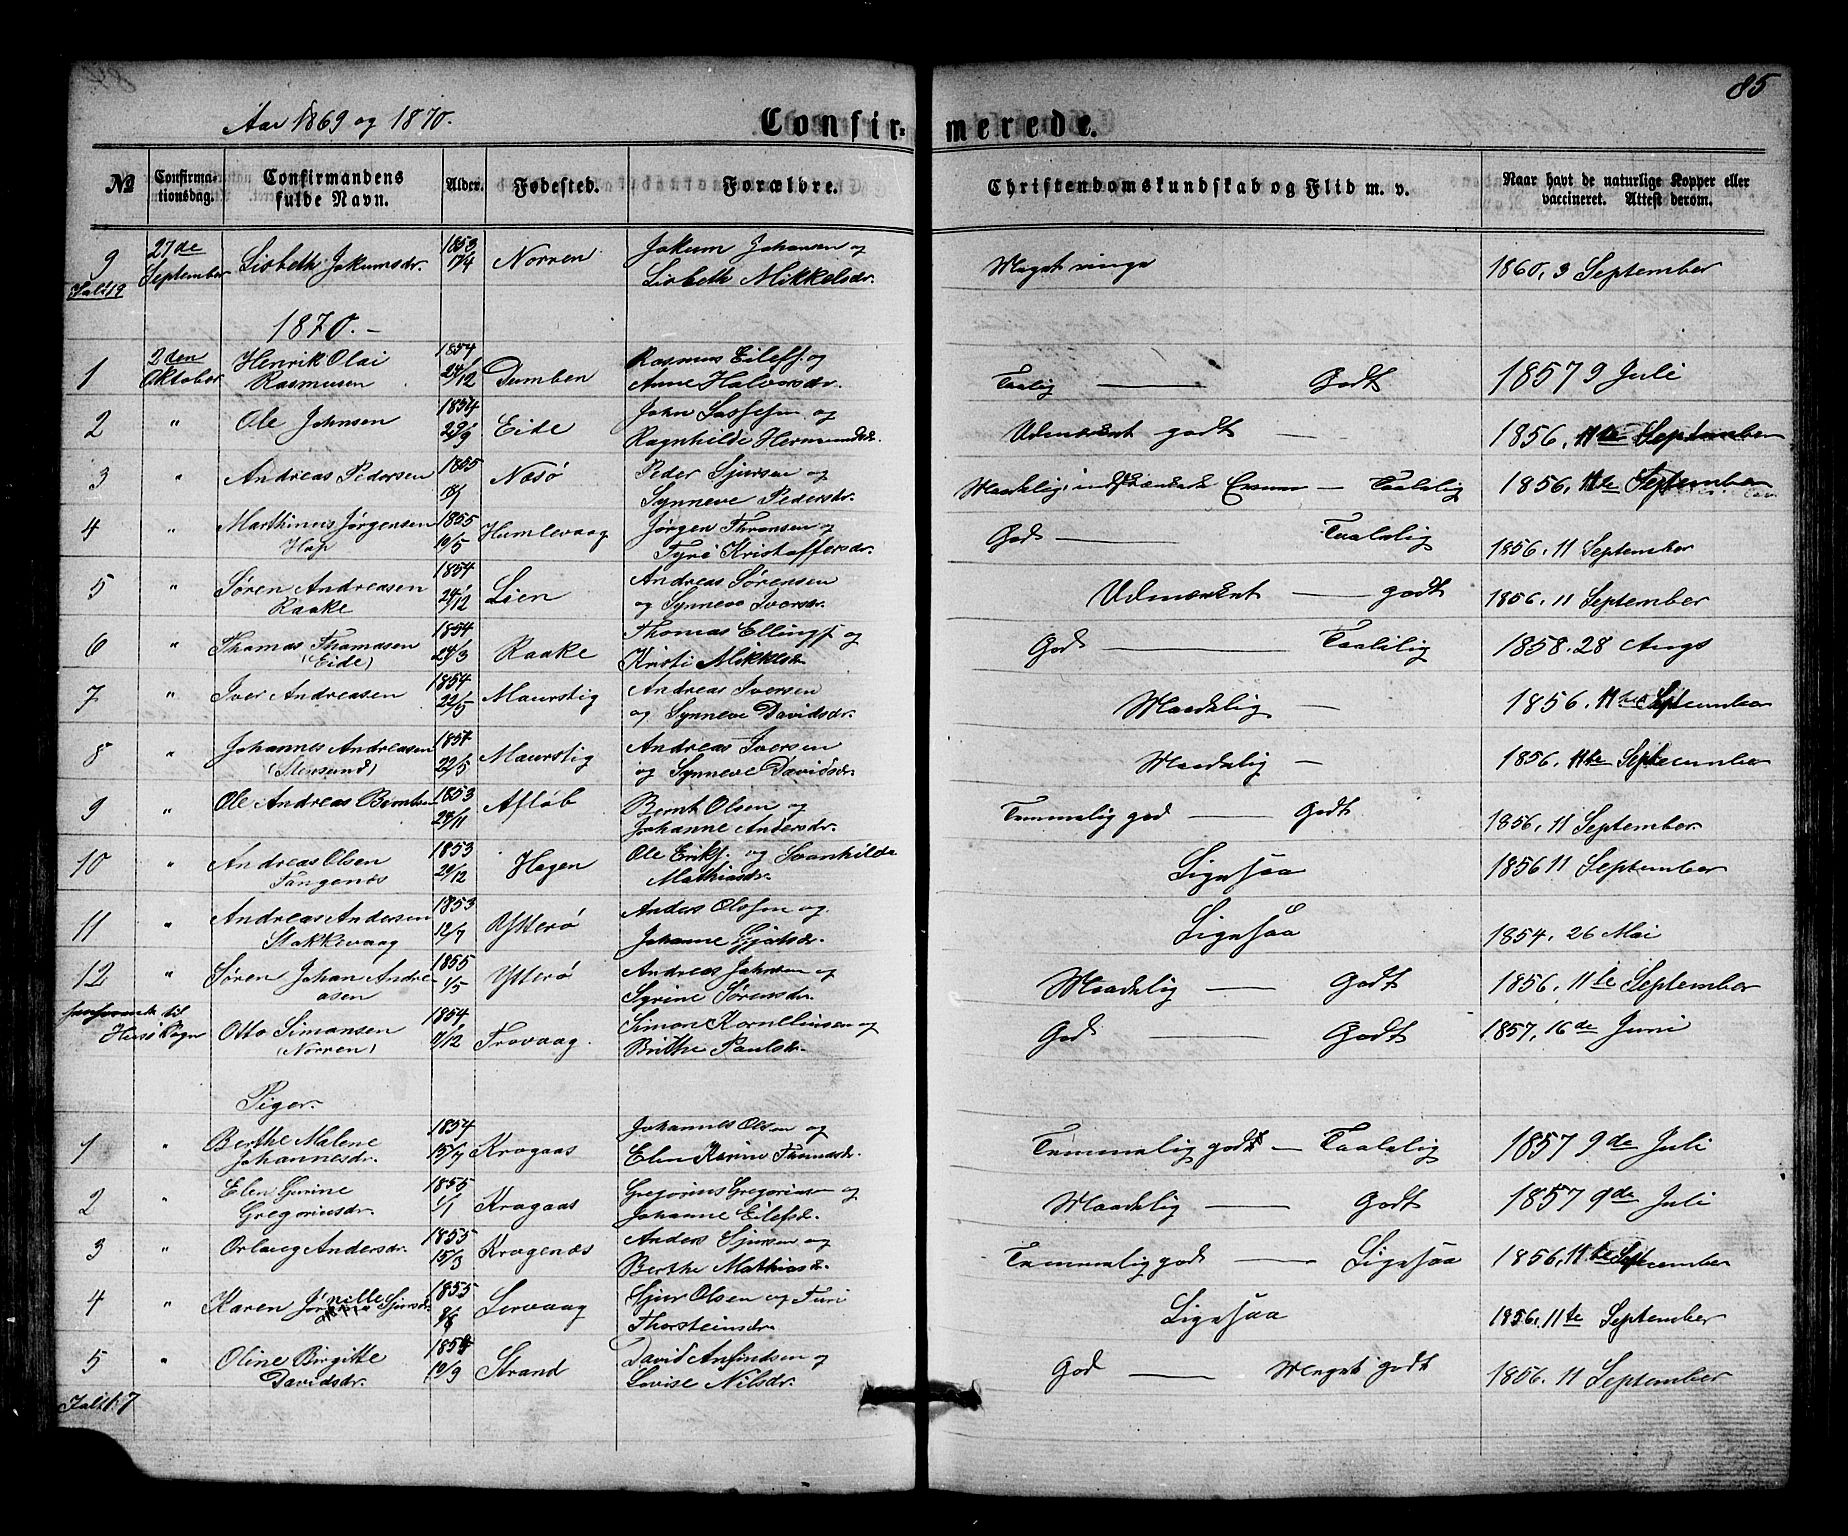 85
Aar 1869 og 1870.
Confir=merede.
№ Confirmationsdag. Confirmandens fulde Navn. Alder. Fødested. Forældre. Christendomskundskab og Flid m. v. Naar havt de naturlige Kopper eller vaccineret. Attest derom.
9 27de 1853 Jakum Johansen og
Ialt 19 September Lisbeth Jakumsdr. 17/4 Norren Lisbeth Mikkelsdr. Meget ringe 1860, 3 September
1870.-
2den Henrik Olai 1854 Rasmus Eilefs. og
1 Oktober Rasmusen 24/12 Dumben Anne Halvorsdr. Taalig — Godt 1857 9 Juli
2 " Ole Johnsen 1854 29/9 Eide John Lassesen og
Ragnhilde Hermundsdr. Udmærket godt — 1856, 11te September
3 " Andreas Pedersen 1855 Nesø Peder Sjursen og
Synneve Pedersdr. Maadelig, indskrænket — Taalelig 1856, 11te September
4 " Marthinus Jørgensen 1855 Humlevaag Jørgen Thronsen og
Hop 10/5 Tyri Kristoffersdr. God — Taalelig 1856, 11 September
5 " Søren Andreasen 1854 Lien Andreas Sørensen
Raake 24/12 og Synneve Iversdr. Udmærket — godt 1856, 11 September
6 " Thomas Thomasen 1854 Thomas Ellings. og
(Eide) 24/3 Raake Kristi Mikkelsdr. God — Taalelig 1858. 28 Augs
7 " Iver Andreasen 1854 22/5 Maurstig Andreas Iversen
og Synneve Davidsdr. Maadelig — 1856, 11te September
8 " Johannes Andreasen 1854 Andreas Iversen
(Stensund) 22/5 Maurstig og Synneve Davidsdr. Maadelig — 1856, 11te September
9 " Ole Andreas Berntsen 1853 Afløb Bernt Olsen og
Johanne Andersdr. Temmelig god — Godt 1856, 11 September
10 " Andreas Olsen 1853 Hagen Ole Eriks. og Svanhilde
Tangenes 29/12 Mathiasdr. Ligesaa 1856 11 September
11 " Andreas Andersen 1853 Ytterø Anders Olsen og
Stakkevaag 12/7 Johanne Gjertsdr. Ligesaa 1854, 26 Mai
12 " Søren Johan Andre- 1855 Ytterø Andreas Johnsen og
asen 1/5 Syrine Sørensdr. Maadelig — Godt 1856, 11te September
til Otto Simonsen 1854 Simon Kornelliusen og
(Norren) 9/12 Trovaag. Brithe Paulsdr. God — Godt 1857, 16de Juni
Piger.
1 " Berthe Malene 1854 Johannes Olsen og
Johannesdr. 15/7 Kragaas Elen Karine Tommesdr. Temmelig godt — Taalelig 1857 9de Juli
2 " Elen Gurine 1855 Gregorius Gregoriusen og
Gregoriusdr. 1/1 Kragaas Johanne Eilefsdr. Maadelig — Godt 1857 9de Juli
3 " Orlaug Andersdr. 1855 15/3 Kragenæs Anders Sjursen og
Berthe Mathiasdr. Temmelig god — Ligesaa 1856, 11te September
4 " Karen Jørnille Sjursdr. 1855 8/8 Lervaag Sjur Olsen og Turi
Thorsteinsdr. Ligesaa 1856, 11te September
5 " Oline Birgitte 1854 Strand David Anfindsen og
Davidsdr. 10/9 Lovise Nilsdr. God — Meget godt 1856. 11 September
Ialt 17